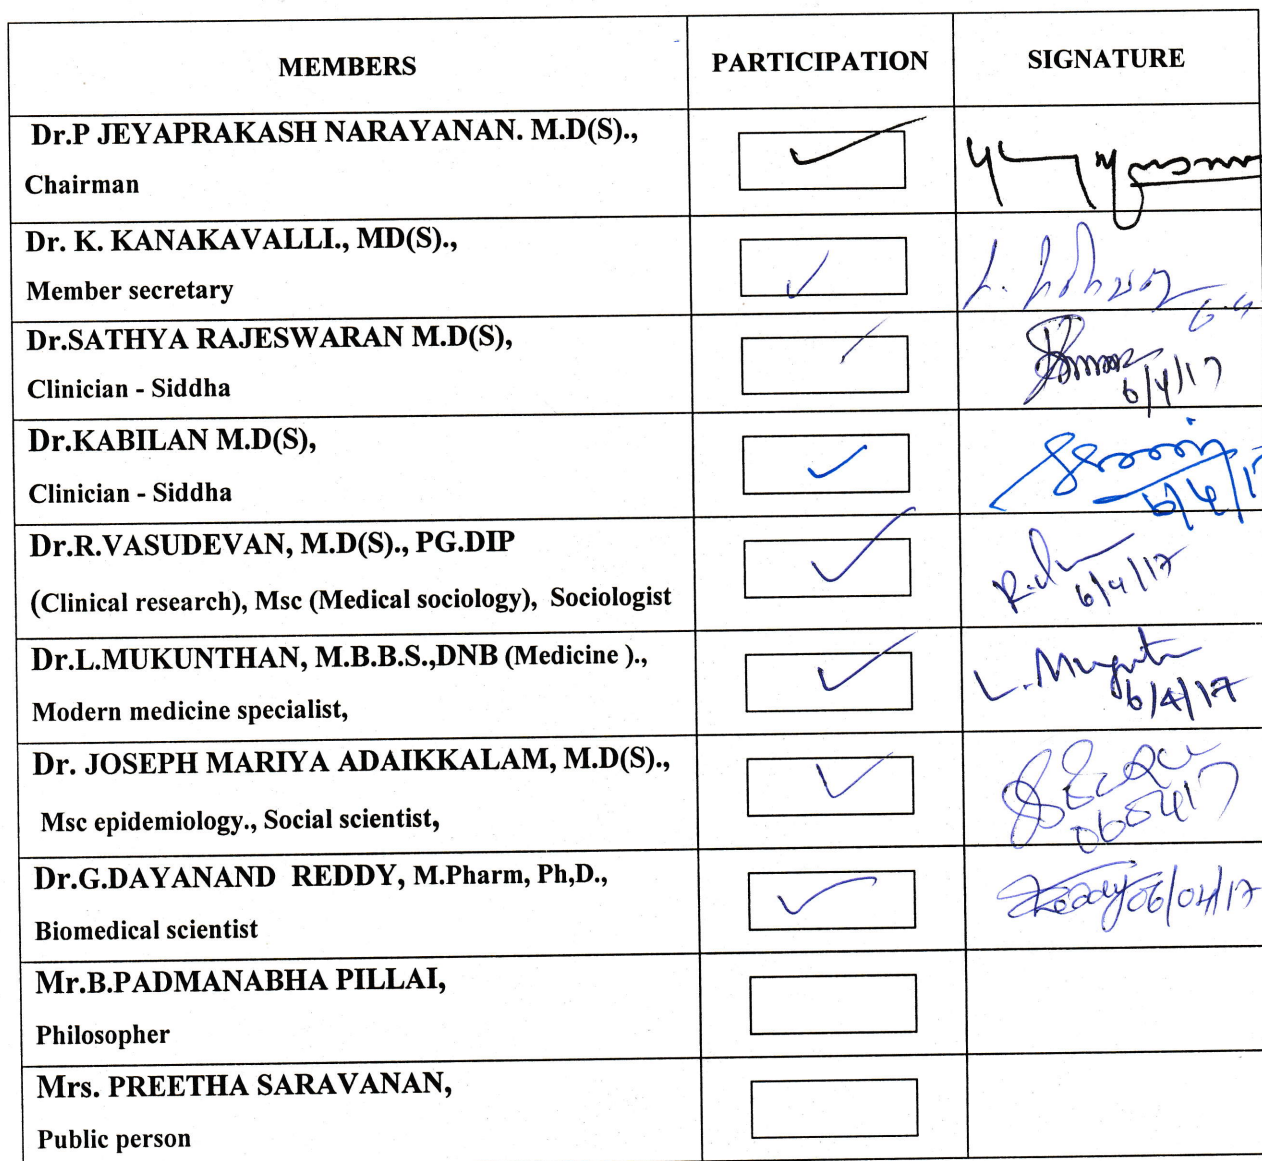 MEMBERS PARTICIPATION SIGNATURE
Dr.P JEYAPRAKASH NARAYANAN. M.D(S).,
Chairman
Dr. K. KANAKAVALLI., MD(S).,
Member secretary
Dr.SATHYA RAJESWARAN M.D(S),
Clinician - Siddha
6/4/17
Dr.KABILAN M.D(S),
Clinician - Siddha
6/4/17
Dr.R.VASUDEVAN, M.D(S)., PG.DIP
(Clinical research), Msc (Medical sociology), Sociologist
6/4/17
Dr.L.MUKUNTHAN, M.B.B.S.,DNB (Medicine ).,
Modern medicine specialist,
6/4/17
Dr. JOSEPH MARIYA ADAIKKALAM, M.D(S).,
Msc epidemiology., Social scientist,
060417
Dr.G.DAYANAND REDDY, M.Pharm, Ph,D.,
Biomedical scientist
06/04/17
Mr.B.PADMANABHA PILLAI,
Philosopher
Mrs. PREETHA SARAVANAN,
Public person